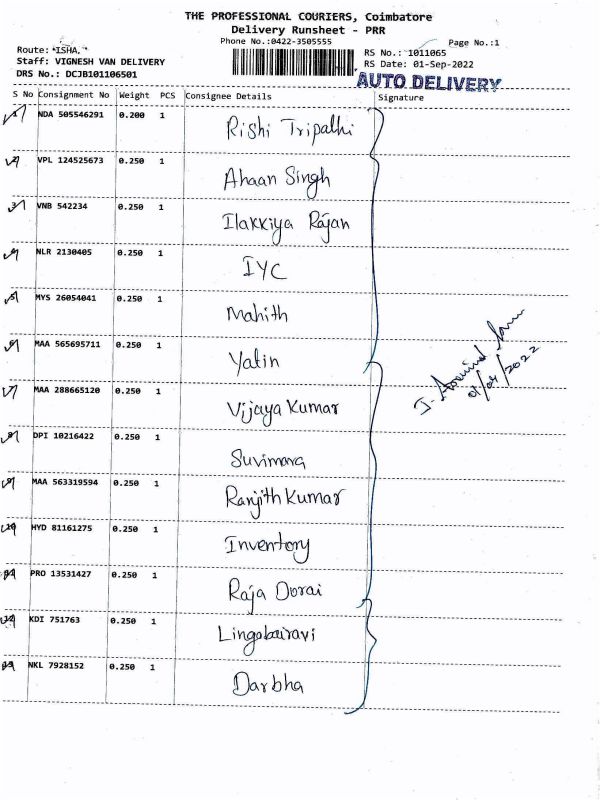 THE PROFESSIONAL COURIERS, Coimbatore
Delivery Runsheet - PRR
Phone No.:0422-3505555
Page No.:1
Route: *ISHA,*
RS No.: 1011065
Staff: VIGNESH VAN DELIVERY
RS Date: 01-Sep-2022
DRS No.: DCJB101106501
AUTO DELIVERY
S No Consignment No Weight PCS Consignee Details Signature
1 NDA 505546291 0.200 1 Rishi Tripathi
2 VPL 124525673 0.250 1 Ahaan Singh
3 VNB 542234 0.250 1 Ilakkiya Rajan
4 NLR 2130405 0.250 1 IYC
5 MYS 26054041 0.250 1 Mahith
6 MAA 565695711 0.250 1 Yatin
7 MAA 288665120 0.250 1 Vijaya Kumar
8 DPI 10216422 0.250 1 Suvimara
9 MAA 563319594 0.250 1 Ranjith Kumar
10 HYD 81161275 0.250 1 Inventory
11 PRO 13531427 0.250 1 Raja Dorai
12 KDI 751763 0.250 1 Lingabairavi
13 NKL 7928152 0.250 1 Darbha